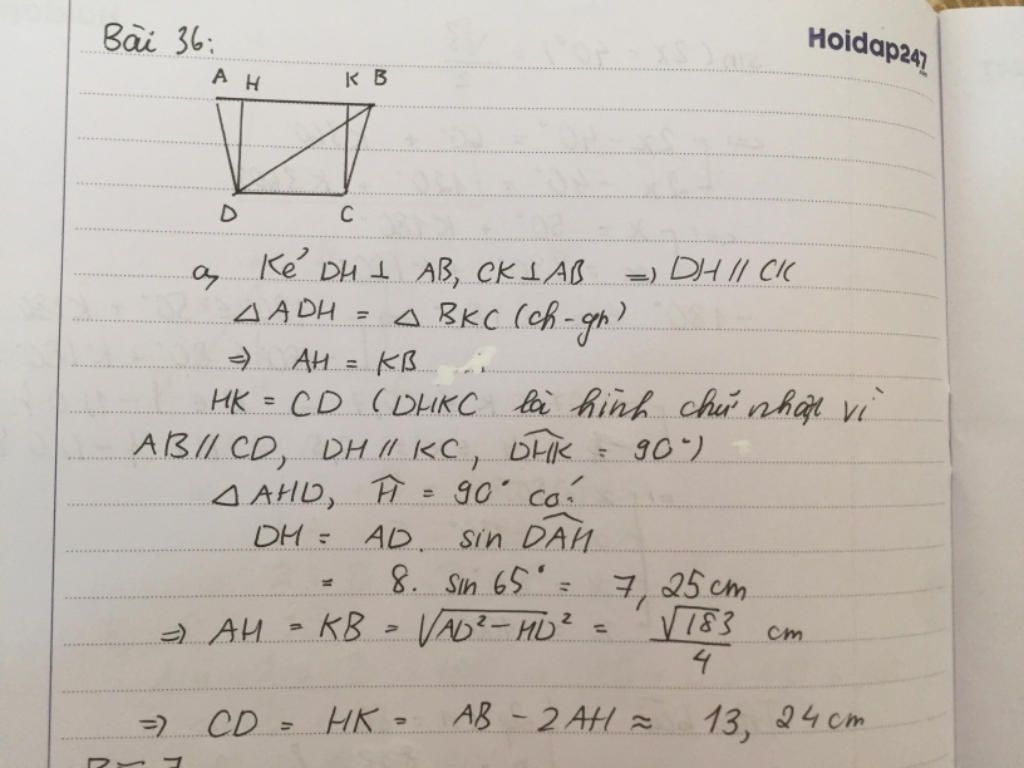 Bài 36:
Hoidap247
A H K B
D C
a, Kẻ DH ⊥ AB, CK ⊥ AB => DH // CK
△ ADH = △ BKC (ch - gn)
=> AH = KB
HK = CD (DHKC là hình chữ nhật vì
AB // CD, DH // KC, \widehat{DHK} = 90°)
△ AHD, \widehat{H} = 90° có:
DH = AD. sin \widehat{DAH}
= 8. sin 65° = 7,25 cm
=> AH = KB = √(AD² - HD²) = √183/4 cm
=> CD = HK = AB - 2AH ≈ 13,24 cm